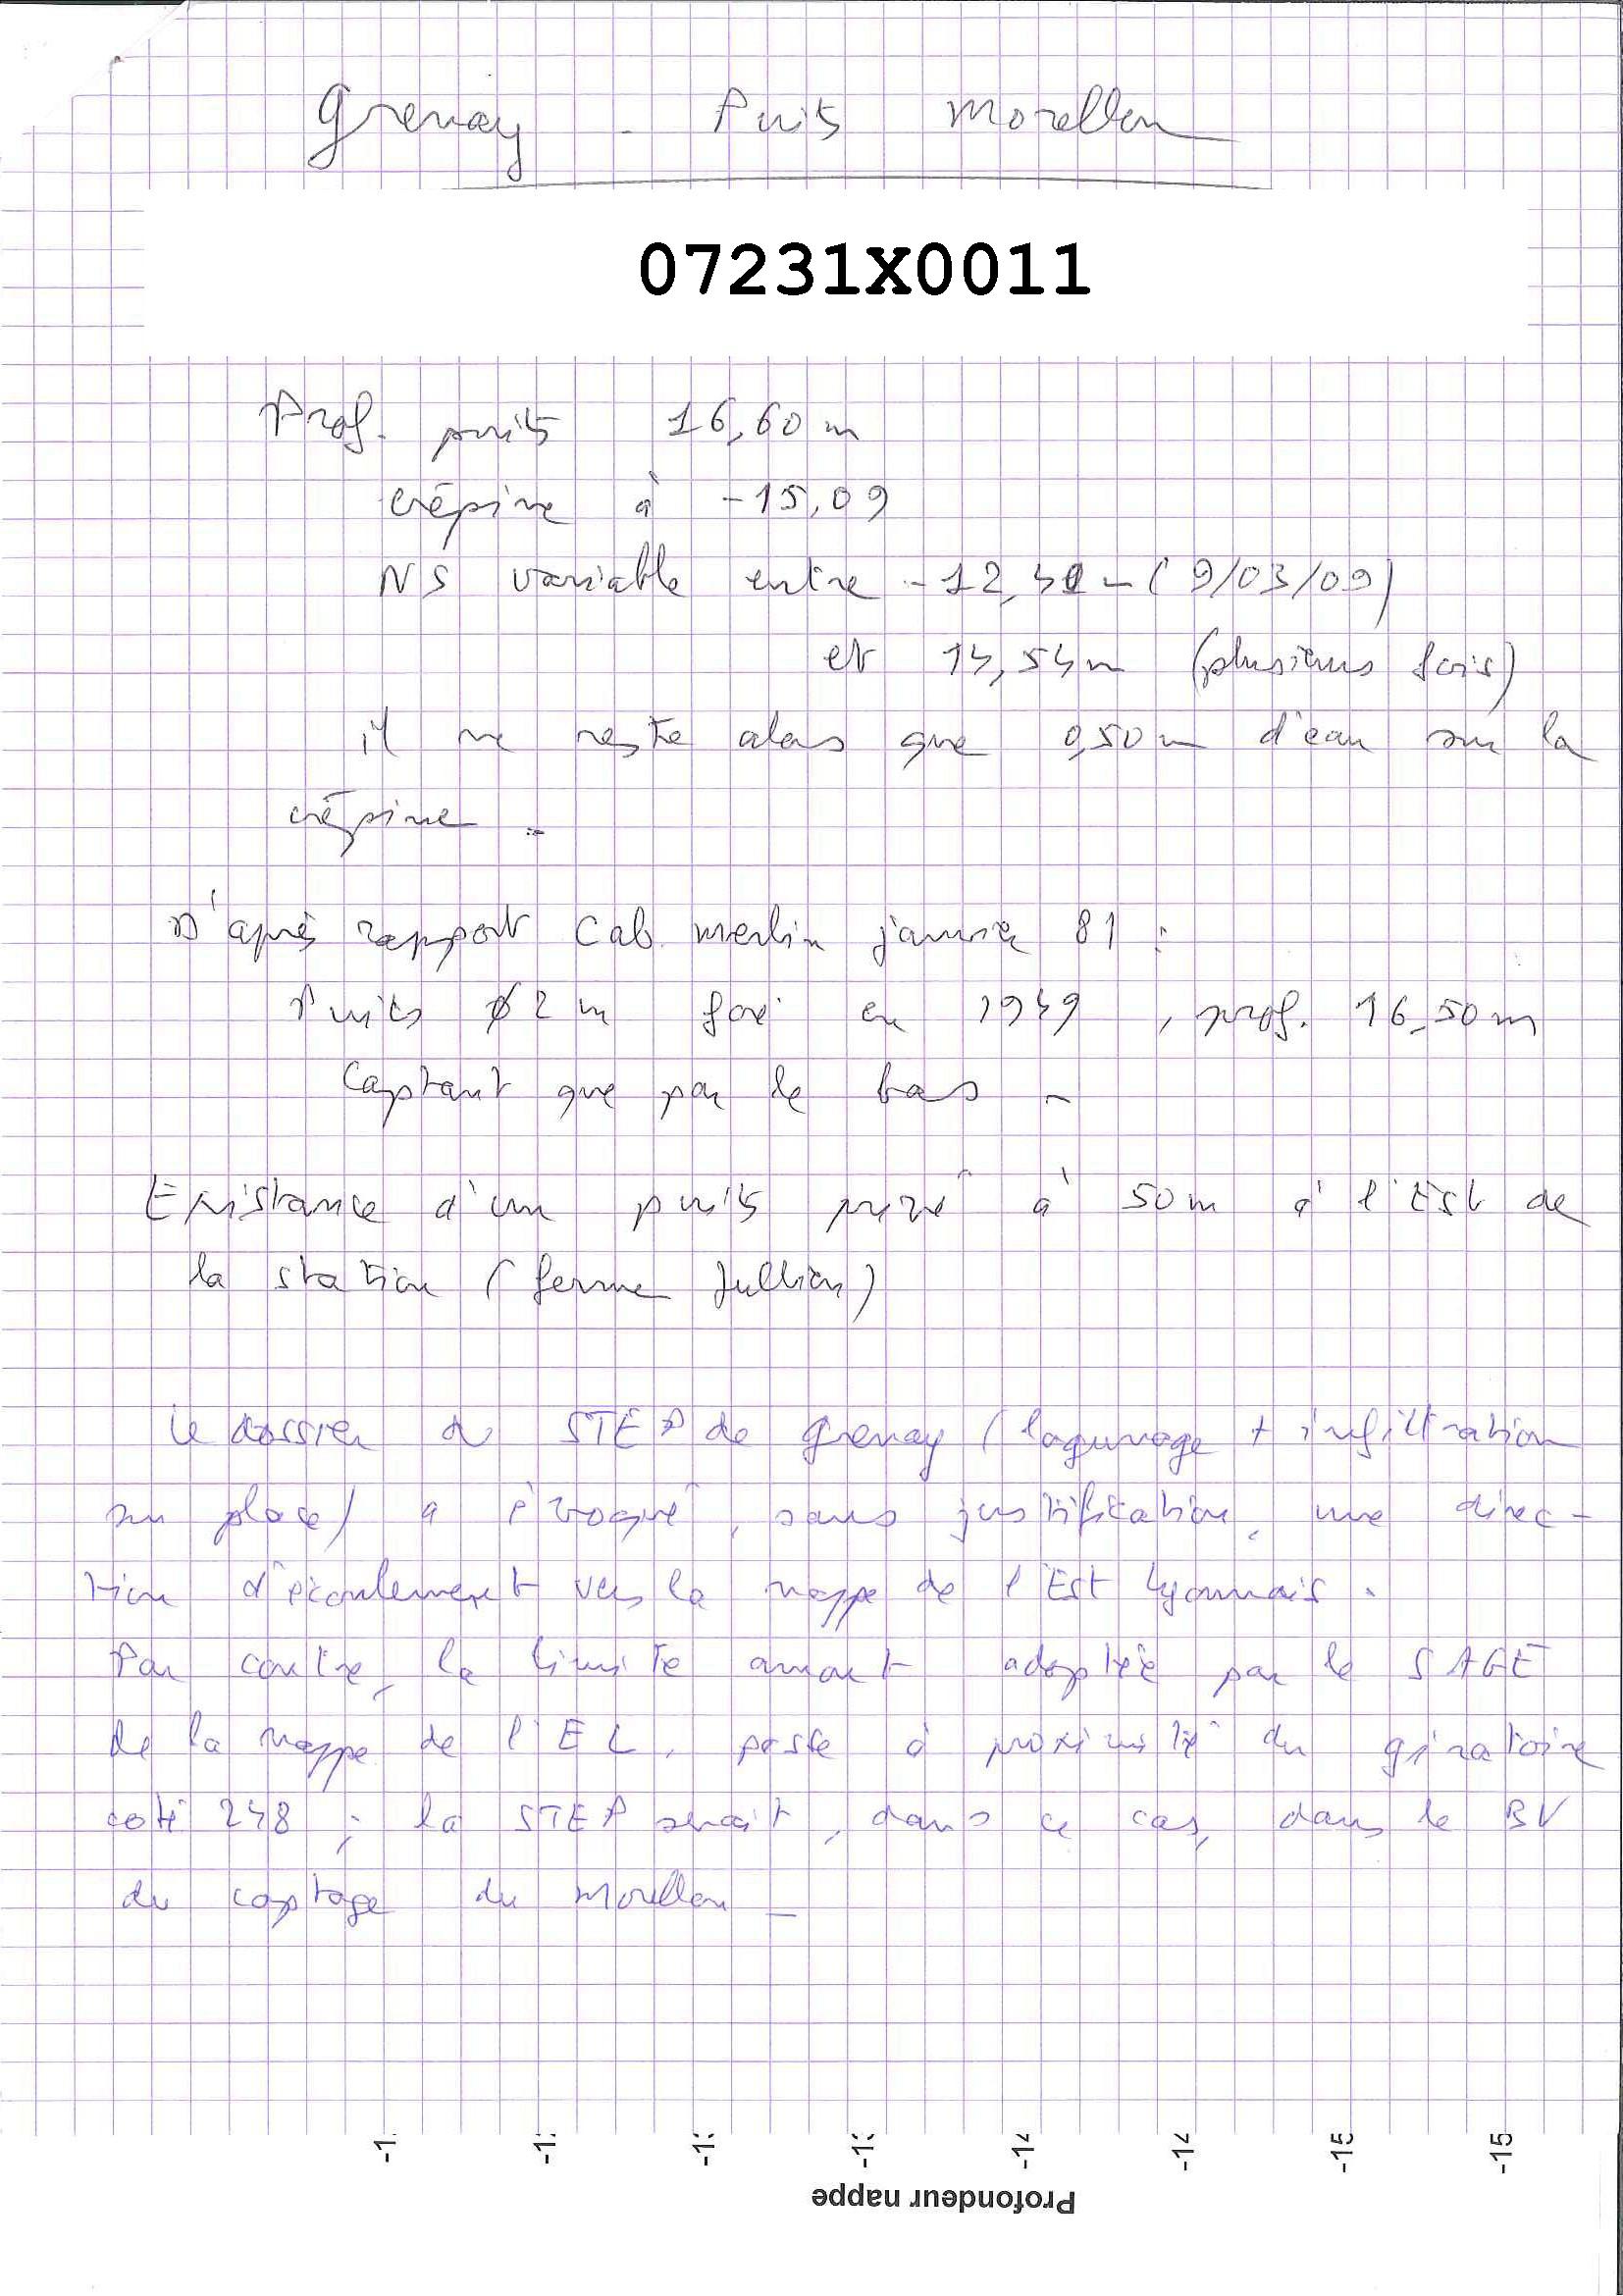 Grenay - Puits Morellon
07231X0011
Prof. puits 16,60 m
crépine à -15,09
NS variable entre -12,41 m (9/03/09)
et 14,54 m (plusieurs fois)
il ne reste alors que 0,50 m d'eau sur la
crépine.
D'après rapport Cab. Merlin janvier 81 :
Puits ø 2 m foré en 1949, prof. 16,50 m
Captant que par le bas -
Existance d'un puits privé à 50 m à l'Est de
la station (ferme Jullien)
Le dossier de STEP de Grenay (lagunage + infiltration
sur place) a évoqué, sans justification, une direc-
tion d'écoulement vers la nappe de l'Est Lyonnais.
Par contre, la limite amont adoptée par le SAGE
de la nappe de l'EL, passe à proximité du giratoire
coté 248 ; la STEP serait, dans ce cas, dans le BV
du captage du Morellon -
-1
-1
-13
-13
-14
-14
-15
-15
Profondeur nappe